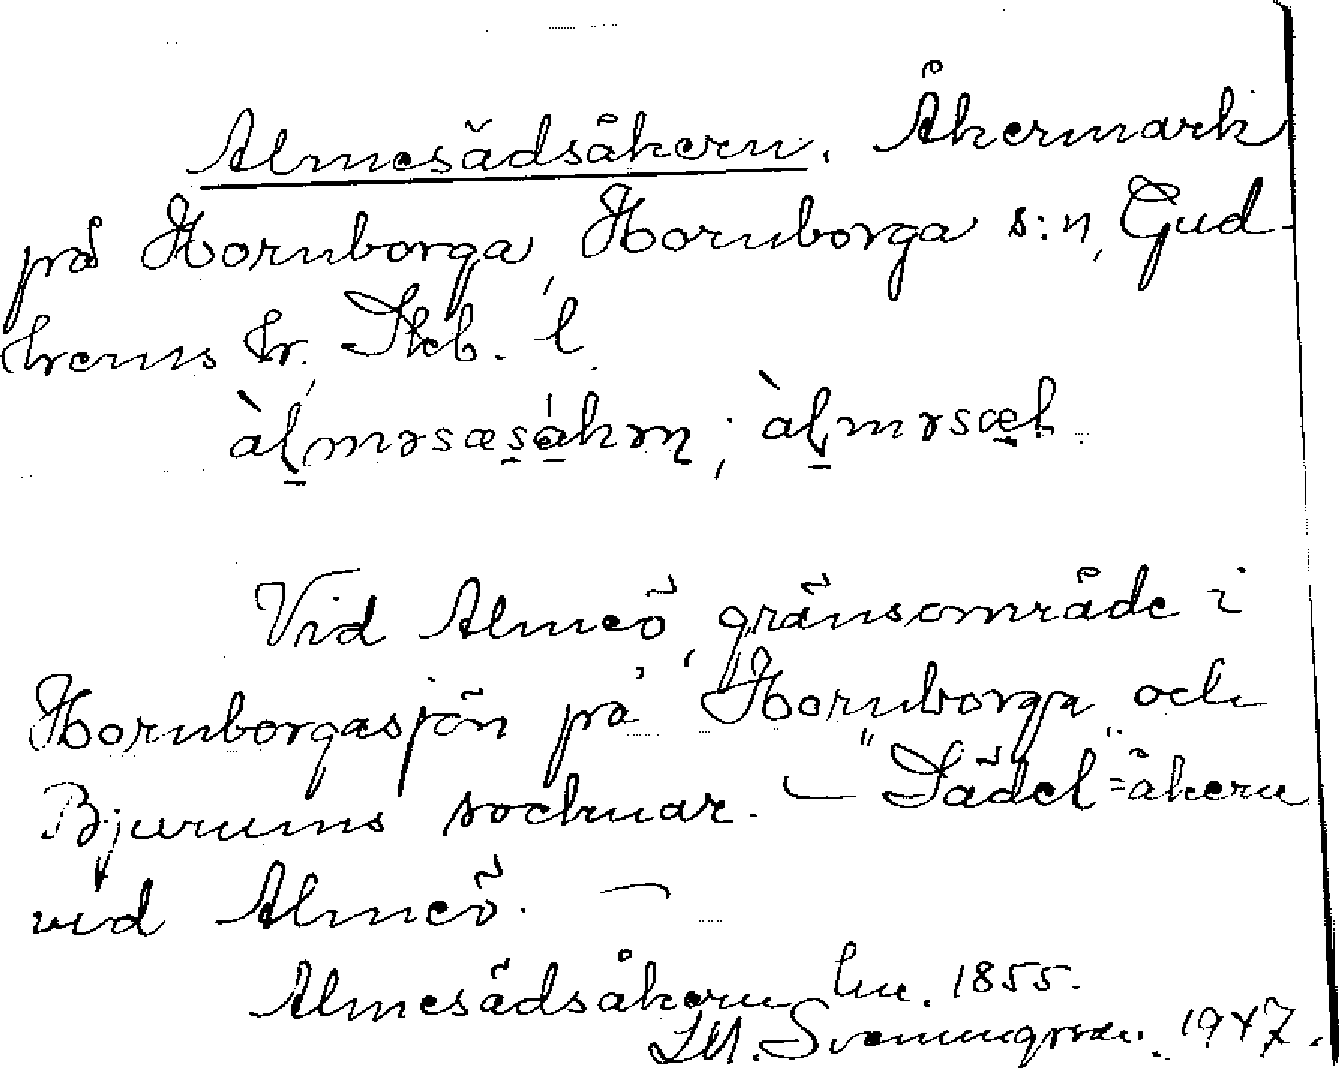 Almesädsåkern. Åkermark
på Hornborga, Hornborga s:n, Gud-
hems hr, Skb. l.
àl̥məsæsåkəɳ; àl̥məsæ
Vid Almeö, gränsområde i
Hornborgasjön på Hornborga och
Bjurums socknar. — "Sädel"-åkern
vid Almeö. —
Almesädsåkern lm. 1855.
Svenungsson. 1947.